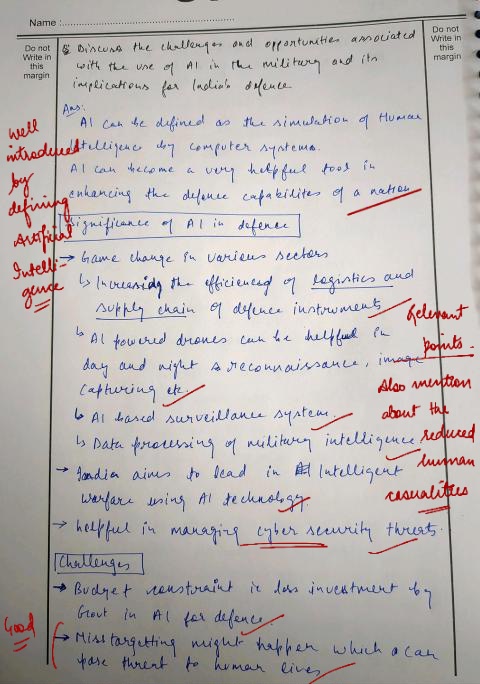 Name :
Do not
Write in
this
margin
Do not
Write in
this
margin
Q Discuss the challenges and opportunities associated
with the use of AI in the military and its
implications for India's defence
Ans:
AI can be defined as the simulation of Human
Intelligence by computer systems.
AI can become a very helpful tool in
enhancing the defence capabilites of a nation
Well
introduced
by
defining
Artificial
Intelli-
gence
Significance of AI in defence
→ Game change in various sectors
↳ Increasing the efficienced of logistics and
supply chain of defence instruments
↳ AI powered drones can be helpful in
day and night reconnaissance, image
capturing etc.
↳ AI based surveillance system.
↳ Data processing of military intelligence
Relevant
points.
Also mention
about the
reduced
human
casualities
→ India aims to lead in Intelligent
warfare using AI technology.
→ helpful in managing cyber security threats.
Challenges
→ Budget constraint i.e less investment by
Govt in AI for defence.
→ Misstargetting might happen which can
pose threat to human lives
Good